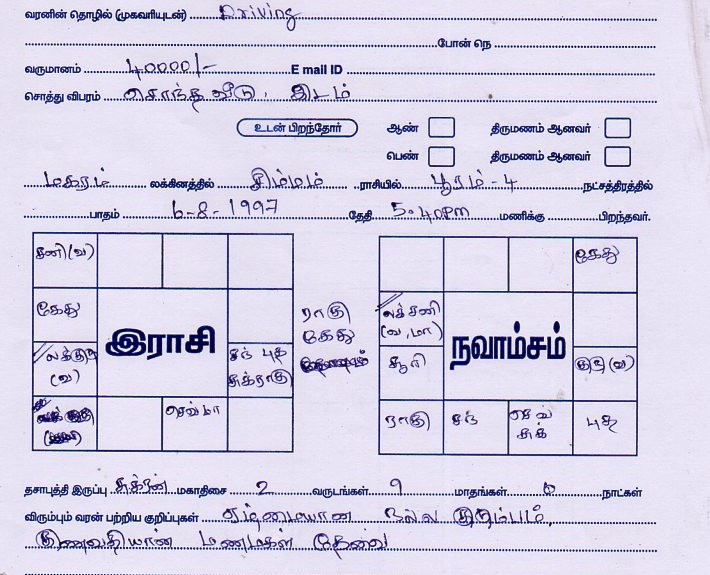 வரனின் தொழில் (முகவரியுடன்) Driving
போன் நெ
வருமானம் 40000/- E mail ID
சொத்து விபரம் சொந்த வீடு, இடம்
உடன் பிறந்தோர் ஆண் திருமணம் ஆனவர்
பெண் திருமணம் ஆனவர்
மகரம் லக்கினத்தில் சிம்மம் ராசியில் பூரம் - 4 நட்சத்திரத்தில்
பாதம் 6-8-1997 தேதி 5.40 PM மணிக்கு பிறந்தவர்.
சனி (வ)
கேது
லக் குரு
(வ)
இராசி
சந் புத
சுக் ராகு
செவ் மா
ராகு
கேது
கேது
லக் சனி
(வ, மா)
சூரி
நவாம்சம்
குரு (வ)
ராகு சந் செவ்
சுக் புத
தசாபுத்தி இருப்பு சுக்ரன் மகாதிசை 2 வருடங்கள் 9 மாதங்கள் 0 நாட்கள்
விரும்பும் வரன் பற்றிய குறிப்புகள் ஏழ்மையான நல்ல குடும்பம்,
குணவதியான மணமகள் தேவை